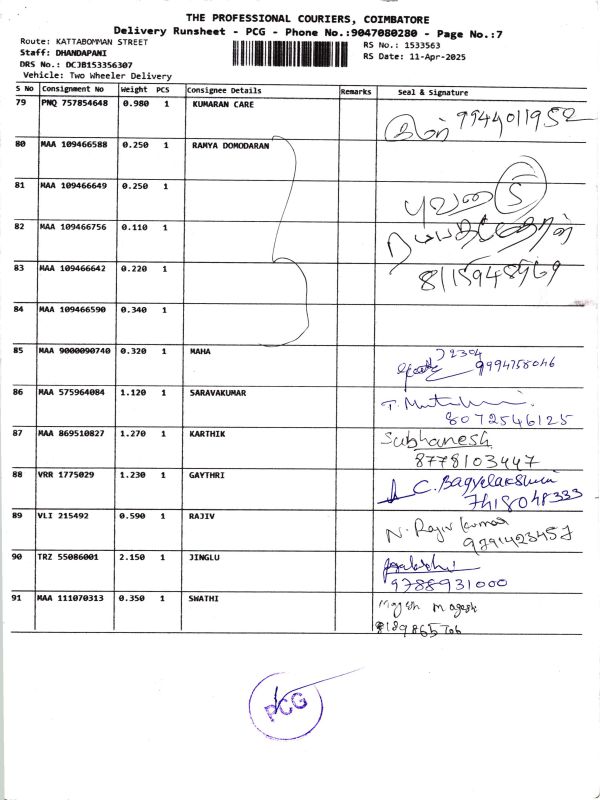 THE PROFESSIONAL COURIERS, COIMBATORE
Delivery Runsheet - PCG - Phone No.:9047080280 - Page No.:7
Route: KATTABOMMAN STREET
RS No.: 1533563
Staff: DHANDAPANI
RS Date: 11-Apr-2025
DRS No.: DCJB153356307
Vehicle: Two Wheeler Delivery
S No Consignment No Weight PCS Consignee Details Remarks Seal & Signature
79 PNQ 757854648 0.980 1 KUMARAN CARE
9944011952
80 MAA 109466588 0.250 1 RAMYA DOMODARAN
81 MAA 109466649 0.250 1
5
82 MAA 109466756 0.110 1
83 MAA 109466642 0.220 1
8115948969
84 MAA 109466590 0.340 1
85 MAA 9000090740 0.320 1 MAHA
2304
9994758046
86 MAA 575964084 1.120 1 SARAVAKUMAR
8072546125
87 MAA 869510827 1.270 1 KARTHIK Subhanesh
8778103447
88 VRR 1775029 1.230 1 GAYTHRI C. Bagyalakshmi
7418048333
89 VLI 215492 0.590 1 RAJIV N. Rajiv kumar
9791423457
90 TRZ 55086001 2.150 1 JINGLU
9788931000
91 MAA 111070313 0.350 1 SWATHI
PCG